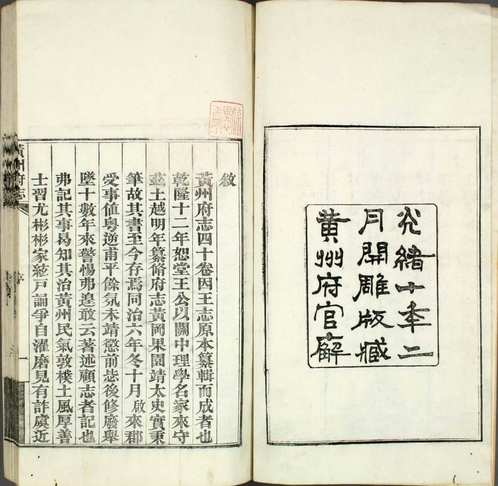 光緒十年二
月開雕版藏
黃州府官廨
敘
黃州府志四十卷因王志原本纂輯而成者也
乾隆十二年恕堂王公以關中理學名家來守
茲土越明年纂脩府志黃岡果園靖太史實秉
筆故其書至今存焉同治六年冬十月啟來郡
受事值粵逆甫平餘氛未靖懲前毖後修廢舉
墜十數年來警惕弗遑敢云著述顧志者記也
弗記其事曷知其治黃州民氣敦樸土風厚善
士習尤彬彬家絃戶誦爭自濯磨見有詐虞近
黃州府志
序
一